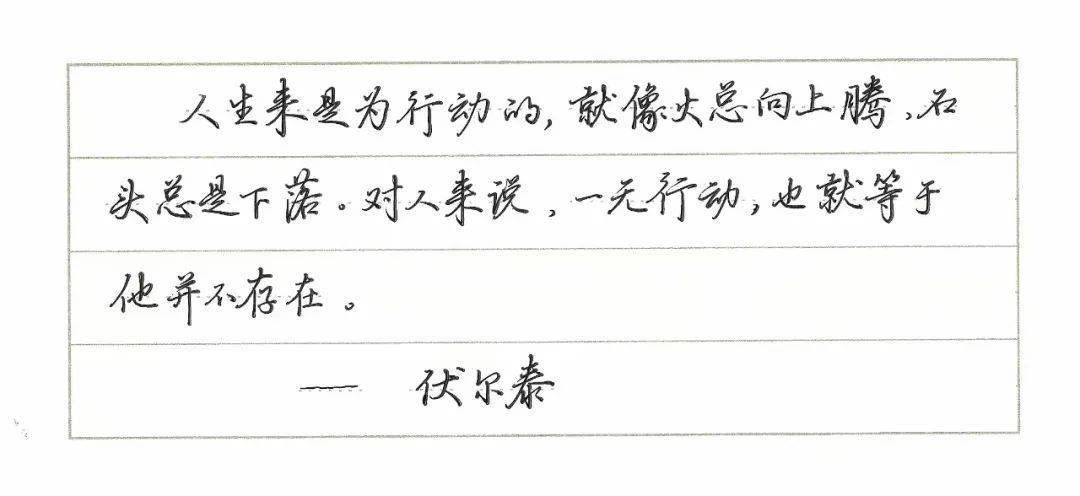 人生来是为行动的,就像火总向上腾、石
头总是下落。对人来说,一无行动,也就等于
他并不存在。
—— 伏尔泰